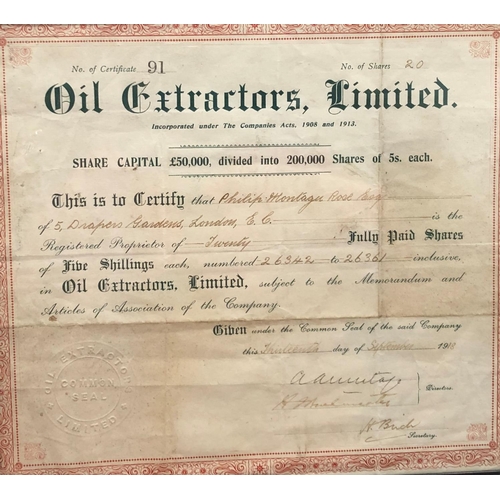 No. of Certificate 91 No. of Shares 20
Oil Extractors, Limited.
Incorporated under The Companies Acts, 1908 and 1913.
SHARE CAPITAL £50,000, divided into 200,000 Shares of 5s. each.
This is to Certify that Philip Montagu Rose Esq
of 5, Drapers Gardens, London, E.C. is the
Registered Proprietor of Twenty Fully Paid Shares
of Five Shillings each, numbered 26342 to 26361 inclusive,
in Oil Extractors, Limited, subject to the Memorandum and
Articles of Association of the Company.
Given under the Common Seal of the said Company
this day of September 191
Directors.
H. Birch
Secretary.
OIL EXTRACTORS
COMMON
SEAL
LIMITED